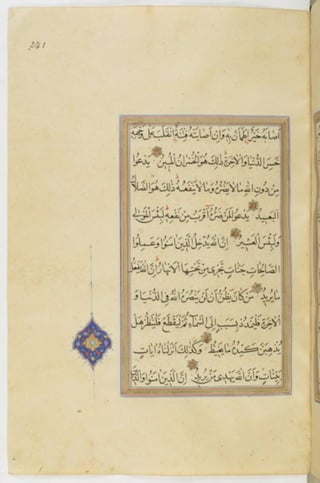 241
اَصَابَهُ خَيْرٌ اطْمَاَنَّ بِهِ وَاِنْ اَصَابَتْهُ فِتْنَةٌ انْقَلَبَ عَلٰى وَجْهِهِ
خَسِرَ الدُّنْيَا وَالْاٰخِرَةَ ذٰلِكَ هُوَ الْخُسْرَانُ الْمُبِينُ يَدْعُوا
مِنْ دُونِ اللّٰهِ مَا لَا يَضُرُّهُ وَمَا لَا يَنْفَعُهُ ذٰلِكَ هُوَ الضَّلَالُ
الْبَعِيدُ يَدْعُوا لَمَنْ ضَرُّهُ اَقْرَبُ مِنْ نَفْعِهِ لَبِئْسَ الْمَوْلٰى
وَلَبِئْسَ الْعَشِيرُ اِنَّ اللّٰهَ يُدْخِلُ الَّذِينَ اٰمَنُوا وَعَمِلُوا
الصَّالِحَاتِ جَنَّاتٍ تَجْرِي مِنْ تَحْتِهَا الْاَنْهَارُ اِنَّ اللّٰهَ يَفْعَلُ
مَا يُرِيدُ مَنْ كَانَ يَظُنُّ اَنْ لَنْ يَنْصُرَهُ اللّٰهُ فِي الدُّنْيَا وَ
الْاٰخِرَةِ فَلْيَمْدُدْ بِسَبَبٍ اِلَى السَّمَاءِ ثُمَّ لْيَقْطَعْ فَلْيَنْظُرْ هَلْ
يُذْهِبَنَّ كَيْدُهُ مَا يَغِيظُ وَكَذٰلِكَ اَنْزَلْنَاهُ اٰيَاتٍ
بَيِّنَاتٍ وَاَنَّ اللّٰهَ يَهْدِي مَنْ يُرِيدُ اِنَّ الَّذِينَ اٰمَنُوا وَالَّذِينَ